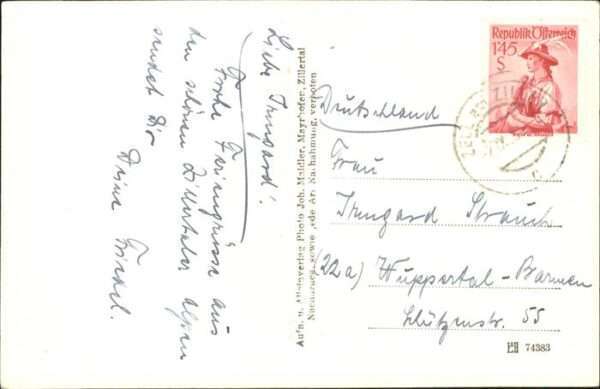 Liebe Irmgard!
Frohe Feriengrüsse aus
den schönen Zillertaler Alpen
sendet Dir
Deine
Aufn. u. Alleinverlag Photo Joh. Maidler, Mayrhofen, Zillertal
Nachahmung, verboten
Republik Österreich
1'45
S
ZELL AM ZILLER
Deutschland
Frau
Irmgard Strauch
(22a) Wuppertal-Barmen
Lützenstr. 55
74383